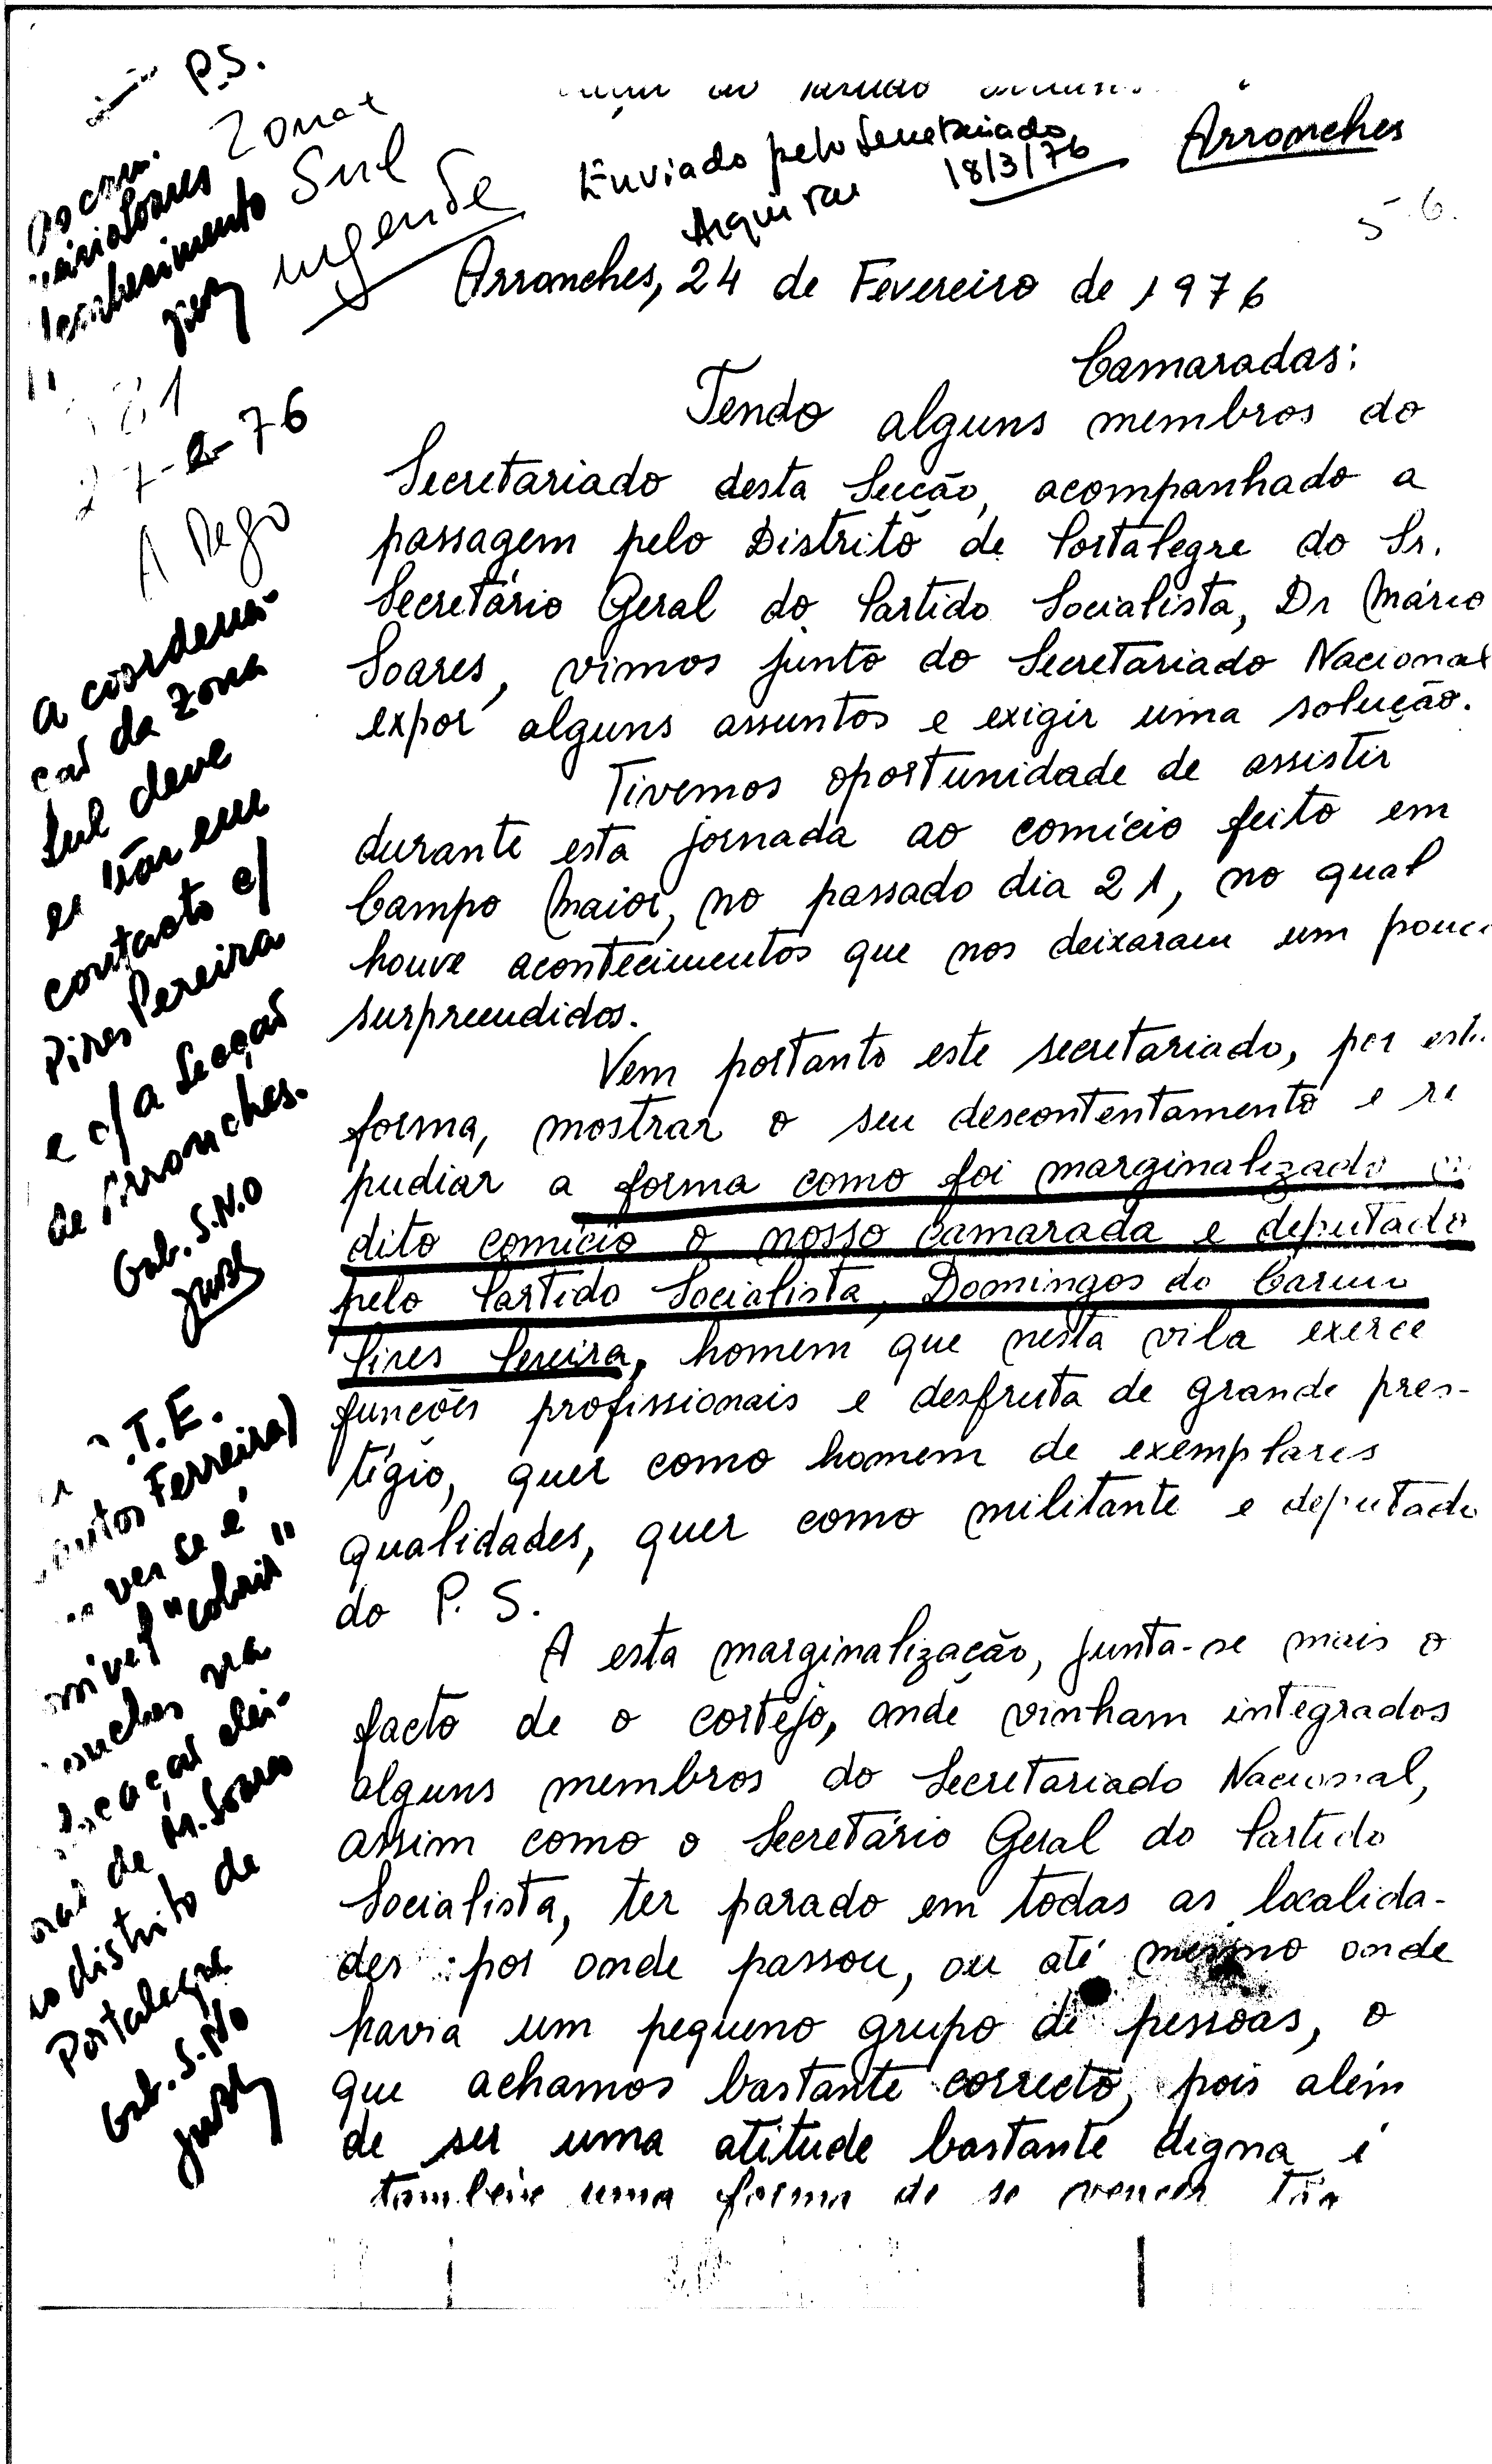 P.S.
Zona
Sul
urgente
Enviado pelo Secretariado
18/3/76
Arquivar
Arronches
5.6.
Arronches, 24 de Fevereiro de 1976
Camaradas:
Tendo alguns membros do
Secretariado desta Secção, acompanhado a
passagem pelo Distrito de Portalegre do Sr.
Secretário Geral do Partido Socialista, Dr Mário
Soares, vimos junto do Secretariado Nacional
expor alguns assuntos e exigir uma solução.
Tivemos oportunidade de assistir
durante esta jornada ao comício feito em
Campo Maior, no passado dia 21, no qual
houve acontecimentos que nos deixaram um
surpreendidos.
Vem portanto este secretariado, por
forma, mostrar o seu descontentamento e re
pudiar a forma como foi marginalizado
dito comício o nosso camarada e deputado
pelo Partido Socialista, Domingos do Carmo
Pires Pereira, homem que nesta vila exerce
funções profissionais e desfruta de grande pres-
tígio, quer como homem de exemplares
qualidades, quer como militante e deputado
do P. S.
A esta marginalização, junta-se mais o
facto de o cortejo, onde vinham integrados
alguns membros do Secretariado Nacional,
assim como o Secretário Geral do Partido
Socialista, ter parado em todas as localida-
des por onde passou, ou até mesmo onde
havia um pequeno grupo de pessoas, o
que achamos bastante correcto, pois além
de ser uma atitude bastante digna é
também uma forma de se vencer
27-2-76
A coordena-
ção da Zona
Sul deve
entrar em
contacto c/
Pires Pereira
e c/ a Secção
de Arronches.
Gab. S.N.O
T.E.
Ferreira)
ver se é
"cobrir"
de M. Soares
distrito de
Portalegre
Gab. S.N.O